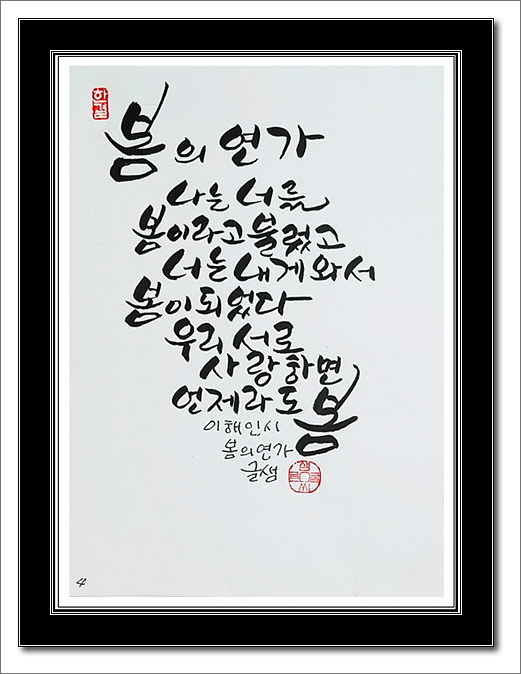 봄의 연가
나는 너를
봄이라고 불렀고
너는 내게 와서
봄이 되었다
우리 서로
사랑하면
언제라도 봄
이해인 시
봄의 연가
글샘
4